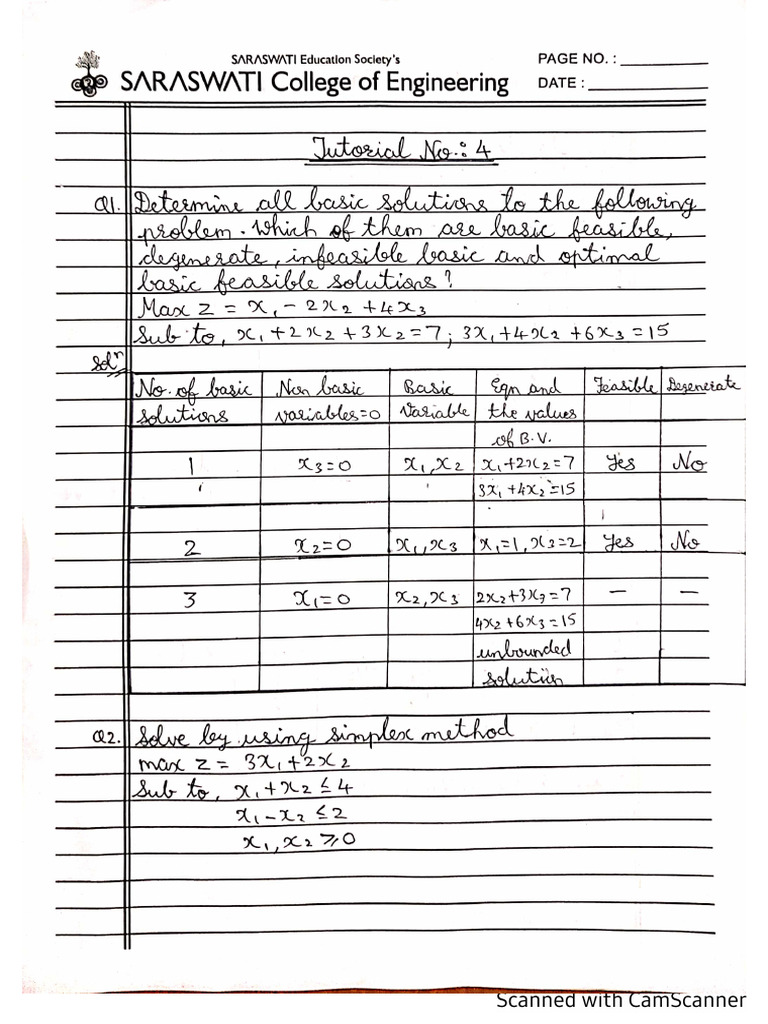 SARASWATI Education Society's
SARASWATI College of Engineering
PAGE NO. :
DATE :
Tutorial No.: 4
Q1. Determine all basic solutions to the following
problem. Which of them are basic feasible,
degenerate, infeasible basic and optimal
basic feasible solutions?
Max z = x₁ - 2x₂ + 4x₃
Sub to, x₁ + 2x₂ + 3x₂ = 7; 3x₁ + 4x₂ + 6x₃ = 15
Solⁿ
No. of basic solutions
Non basic variables=0
Basic Variable
Eqn and the values of B.V.
Feasible
Degenerate
1 x₃=0 x₁, x₂ x₁+2x₂=7 Yes No
3x₁+4x₂=15
2 x₂=0 x₁, x₃ x₁=1, x₃=2 Yes No
3 x₁=0 x₂, x₃ 2x₂+3x₃=7 — —
4x₂+6x₃=15
unbounded
solution
Q2. Solve by using simplex method
max z = 3x₁+2x₂
Sub to, x₁+x₂ ≤ 4
x₁-x₂ ≤ 2
x₁, x₂ ≥ 0
Scanned with CamScanner